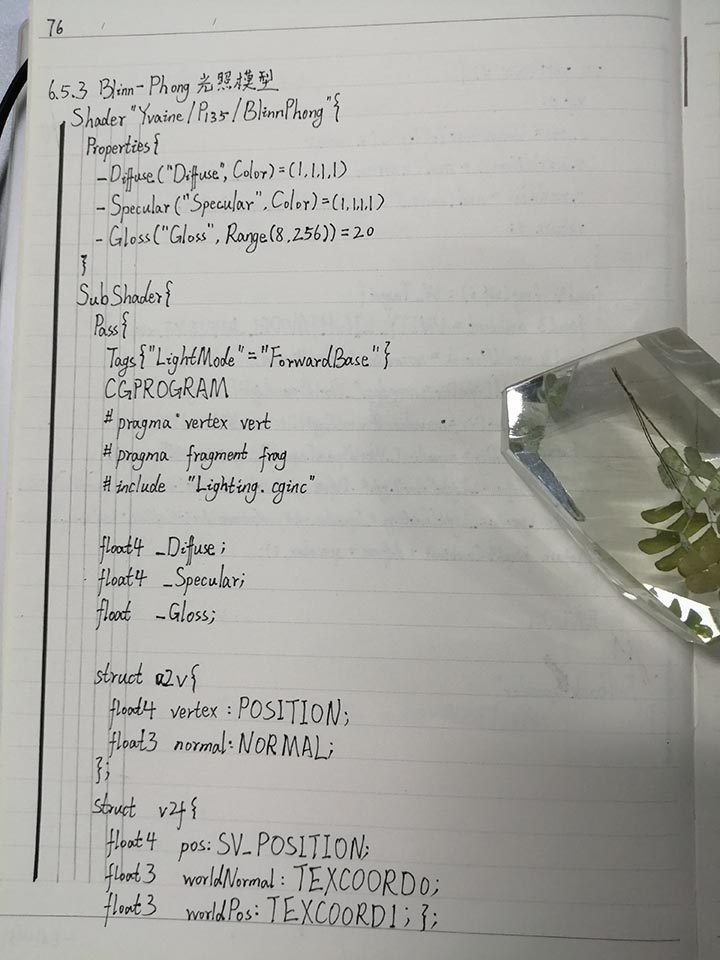 76
6.5.3 Blinn-Phong 光照模型
Shader "Yvaine/P135/BlinnPhong"{
Properties{
_Diffuse("Diffuse", Color)=(1,1,1,1)
_Specular("Specular", Color)=(1,1,1,1)
_Gloss("Gloss", Range(8,256))=20
}
SubShader{
Pass{
Tags{"LightMode"="ForwardBase"}
CGPROGRAM
#pragma vertex vert
#pragma fragment frag
#include "Lighting.cginc"
float4 _Diffuse;
float4 _Specular;
float _Gloss;
struct a2v{
float4 vertex : POSITION;
float3 normal: NORMAL;
};
struct v2f{
float4 pos: SV_POSITION;
float3 worldNormal: TEXCOORD0;
float3 worldPos: TEXCOORD1; };